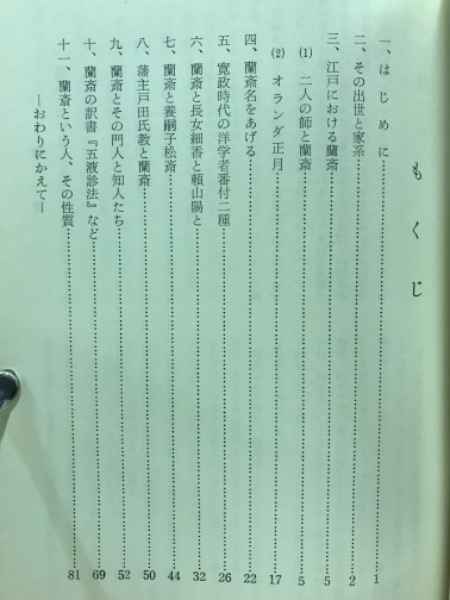 もくじ
一、はじめに……1
二、その出世と家系……2
三、江戸における蘭斎……5
(1) 二人の師と蘭斎……5
(2) オランダ正月……17
四、蘭斎名をあげる……22
五、寛政時代の洋学者番付二種……26
六、蘭斎と長女細香と頼山陽と……32
七、蘭斎と養嗣子松斎……44
八、藩主戸田氏教と蘭斎……50
九、蘭斎とその門人と知人たち……52
十、蘭斎の訳書『五液診法』など……69
十一、蘭斎という人、その性質……81
―おわりにかえて―